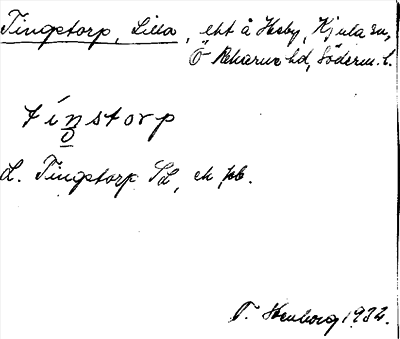 Tingstorp, Lilla, eht å Hesby, Kjula sn,
Ö Rekarne hd, Söderm. l.
tínstorp
o
L. Tingstorp SL, ek jb.
T. 1932.